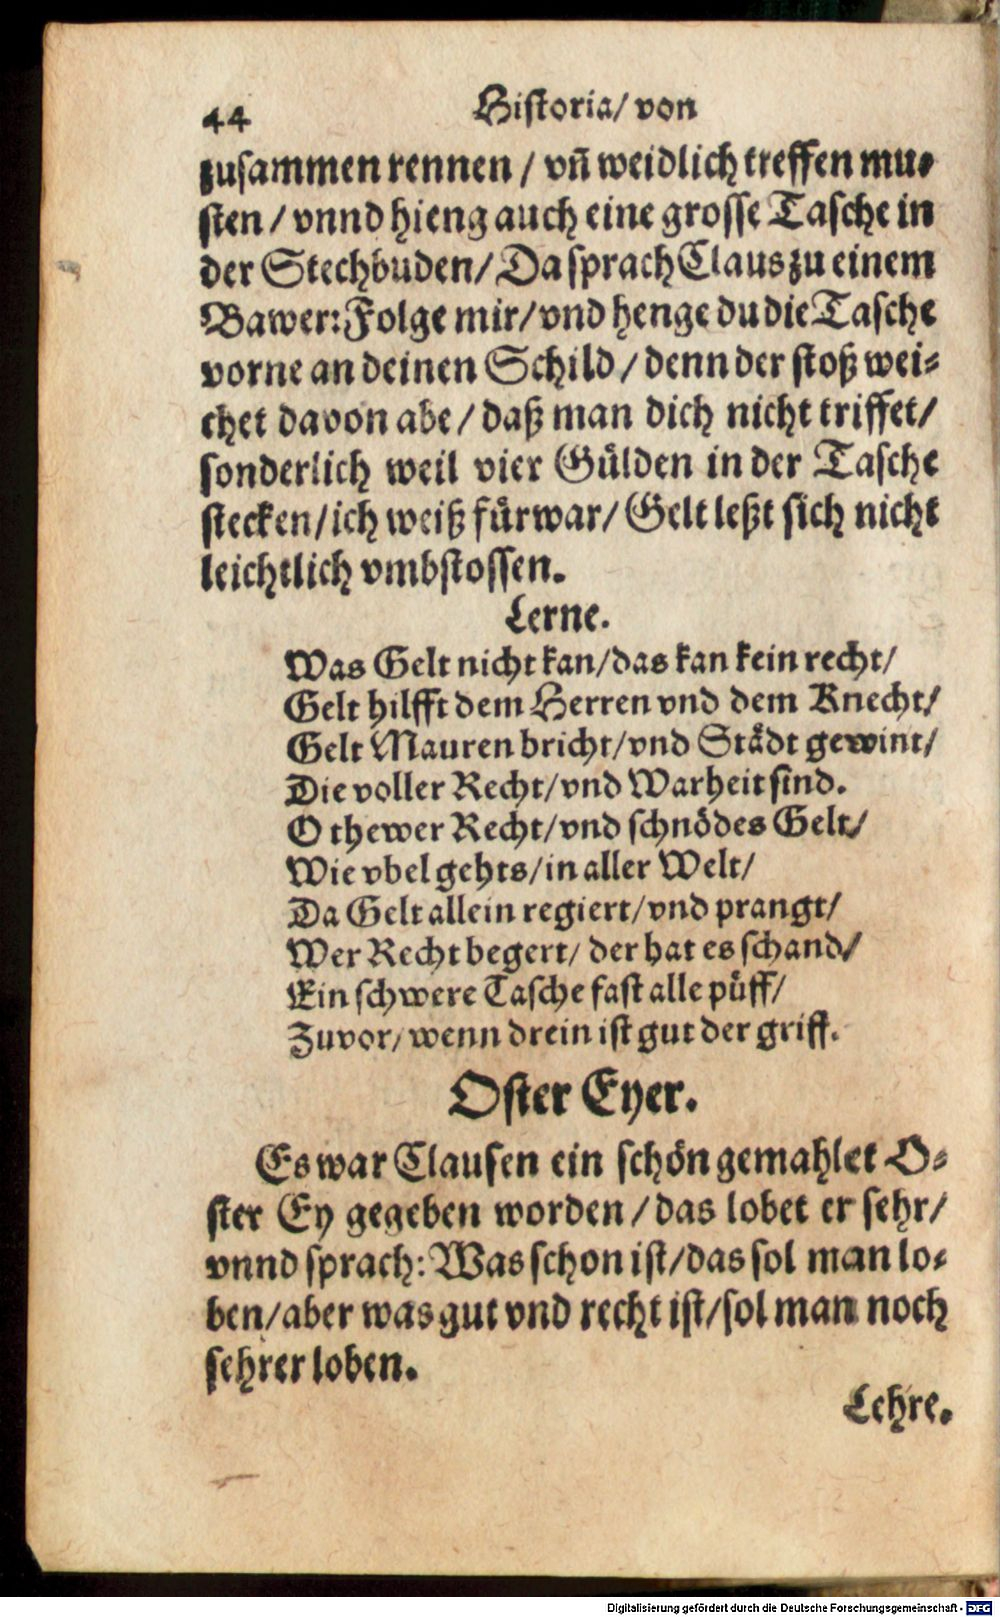 44 Historia/ von
zusammen rennen / vñ weidlich treffen mu⸗
sten / vnnd hieng auch eine grosse Tasche in
der Stechbuden/ Da sprach Claus zu einem
Bawer: Folge mir/ vnd henge du die Tasche
vorne an deinen Schild / denn der stoß wei⸗
chet davon abe / daß man dich nicht triffet/
sonderlich weil vier Gülden in der Tasche
stecken/ ich weiß fürwar/ Gelt leßt sich nicht
leichtlich vmbstossen.
Lerne.
Was Gelt nicht kan/ das kan kein recht/
Gelt hilfft dem Herren vnd dem Knecht/
Gelt Mauren bricht/ vnd Städt gewint/
Die voller Recht/ vnd Warheit sind.
O thewer Recht/ vnd schnödes Gelt/
Wie vbel gehts/ in aller Welt/
Da Gelt allein regiert/ vnd prangt/
Wer Recht begert/ der hat es schand/
Ein schwere Tasche fast alle püff/
Zuvor/ wenn drein ist gut der griff.
Oster Eyer.
Es war Clausen ein schön gemahlet O⸗
ster Ey gegeben worden / das lobet er sehr/
vnnd sprach: Was schon ist/ das sol man lo⸗
ben/ aber was gut vnd recht ist/ sol man noch
sehrer loben.
Lehre.
Digitalisierung gefördert durch die Deutsche Forschungsgemeinschaft - DFG